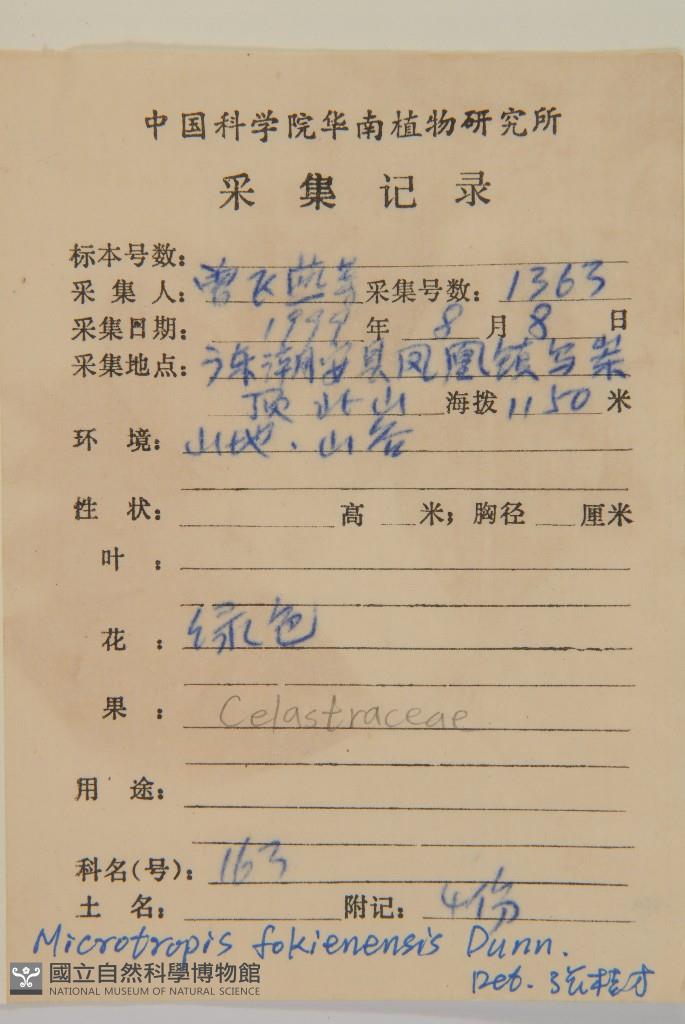 中国科学院华南植物研究所
采集记录
标本号数:
采集人: 曾飞燕等 采集号数: 1363
采集日期: 1999 年 8 月 8 日
采集地点: 广东潮安县凤凰镇乌崠
顶 北山 海拨 1150 米
环境: 山地.山谷
性状: 高 米; 胸径 厘米
叶:
花: 绿色
果: Celastraceae
用途:
科名(号): 163
土名: 附记: 4份
Microtropis fokienensis Dunn.
Det. 张桂才
國立自然科學博物館
NATIONAL MUSEUM OF NATURAL SCIENCE